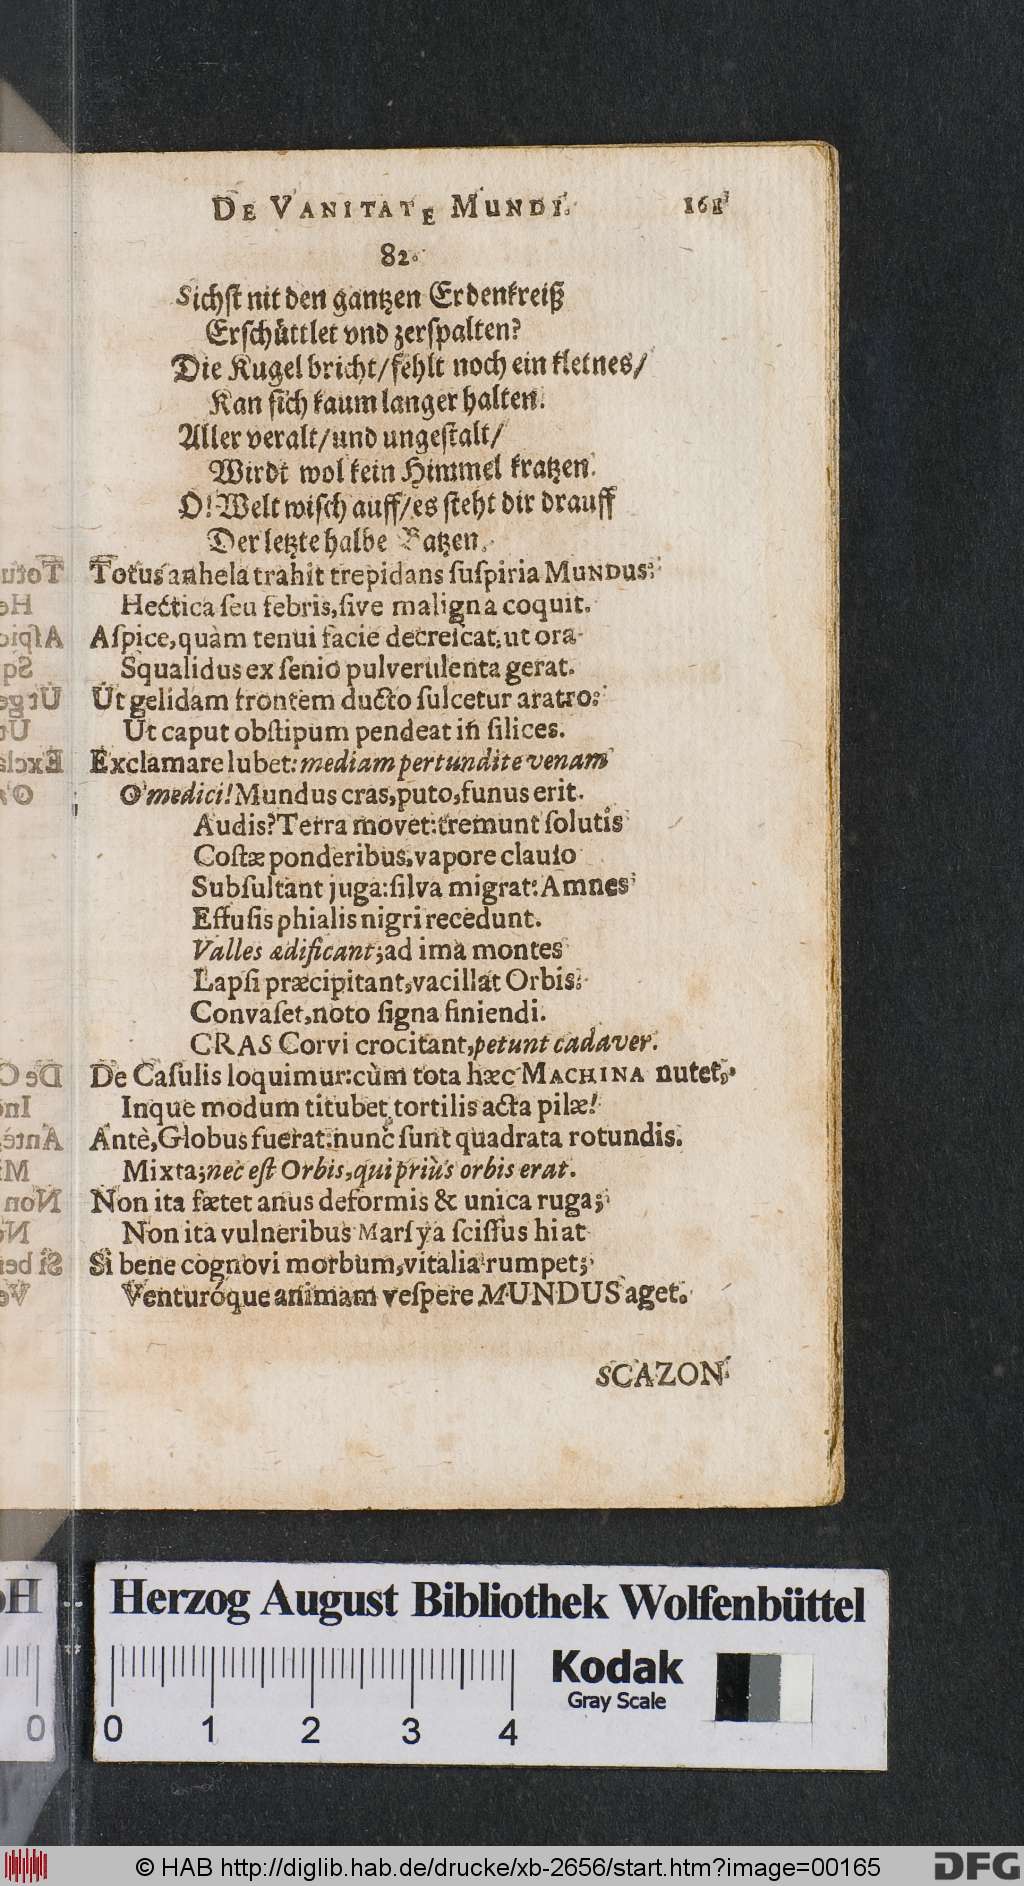 DE VANITATE MUNDI. 161
82.
Sichst nit den gantzen Erdenkreiß
Erschüttlet vnd zerspalten?
Die Kugel bricht/fehlt noch ein kleines/
Kan sich kaum langer halten.
Aller veralt/und ungestalt/
Wirdt wol kein Himmel kratzen.
O! Welt wisch auff/es steht dir drauff
Der letzte halbe Batzen.
Totus anhela trahit trepidans ſuſpiria MUNDUS:
Hectica ſeu febris,ſive maligna coquit.
Aſpice,quàm tenui facie decreſcat:ut ora
Squalidus ex ſenio pulverulenta gerat.
Ut gelidam frontem ducto ſulcetur aratro:
Ut caput obſtipum pendeat iñ ſilices.
Exclamare lubet: mediam pertundite venam
O medici! Mundus cras,puto,funus erit.
Audis? Terra movet:tremunt ſolutis
Coſtæ ponderibus,vapore clauſo
Subſultant juga:ſilva migrat: Amnes
Effuſis phialis nigri recedunt.
Valles ædificant;ad ima montes
Lapſi præcipitant,vacillat Orbis.
Convaſet,noto ſigna finiendi.
CRAS Corvi crocitant,petunt cadaver.
De Caſulis loquimur:cùm tota hæc MACHINA nutet,
Inque modum titubet tortilis acta pilæ!
Antè,Globus fuerat:nunc ſunt quadrata rotundis.
Mixta;nec eſt Orbis,qui priùs orbis erat.
Non ita fætet anus deformis & unica ruga;
Non ita vulneribus Marſya ſciſſus hiat
Si bene cognovi morbum,vitalia rumpet;
Venturóque animam veſpere MUNDUS aget.
SCAZON
Herzog August Bibliothek Wolfenbüttel
Kodak
Gray Scale
0 1 2 3 4
© HAB http://diglib.hab.de/drucke/xb-2656/start.htm?image=00165
DFG